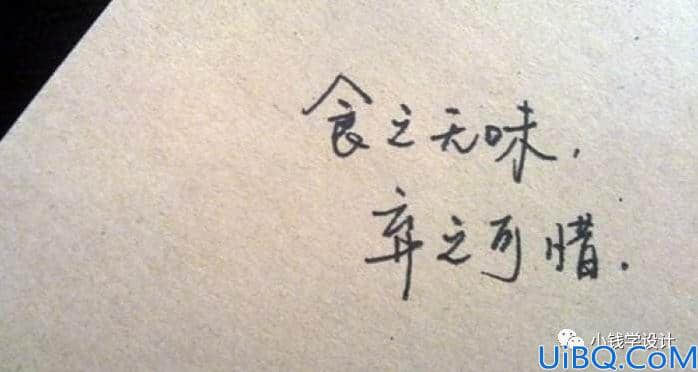 食之无味，
弃之可惜．
小钱学设计
UiBQ.CoM